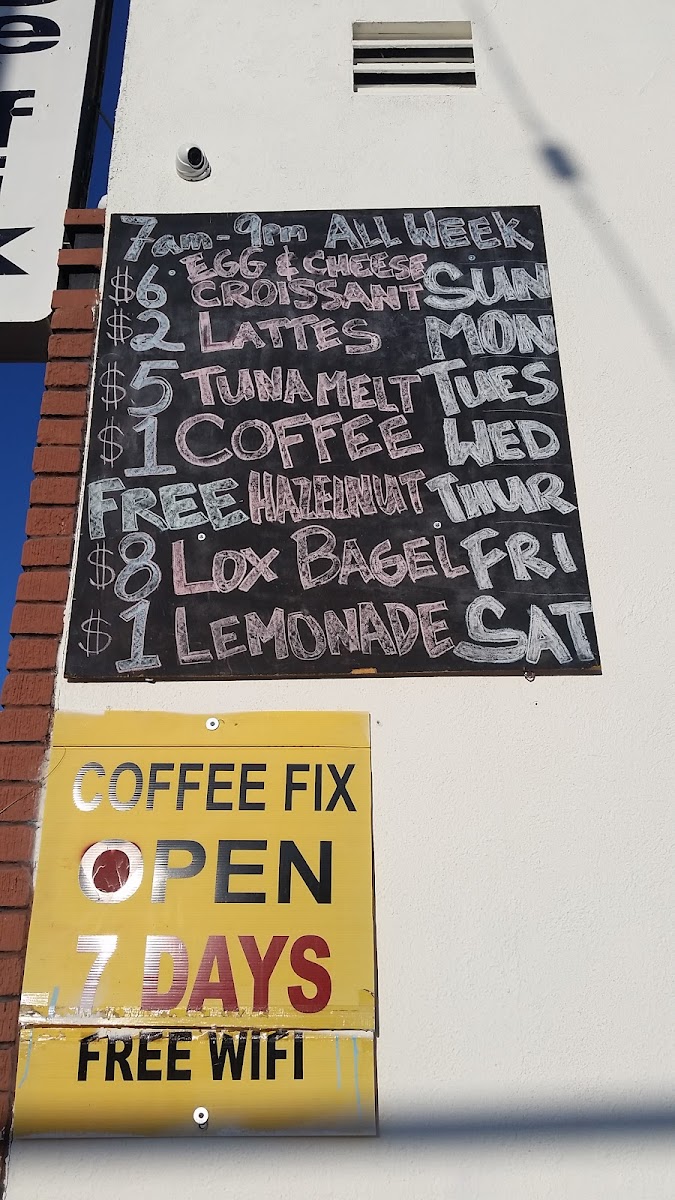 e
f
i
7am-9pm ALL WEEK
$6 EGG & CHEESE CROISSANT SUN
$2 LATTES MON
$5 TUNA MELT TUES
$1 COFFEE WED
FREE HAZELNUT THUR
$8 LOX BAGEL FRI
$1 LEMONADE SAT
COFFEE FIX
OPEN
7 DAYS
FREE WIFI